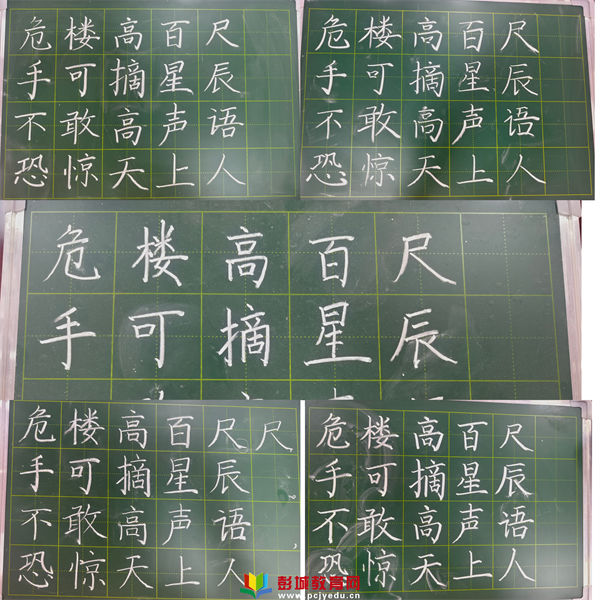 危楼高百尺
手可摘星辰
不敢高声语
恐惊天上人
危楼高百尺
手可摘星辰
不敢高声语
恐惊天上人
危楼高百尺
手可摘星辰
危楼高百尺尺
手可摘星辰
不敢高声语
恐惊天上人
危楼高百尺
手可摘星辰
不敢高声语
恐惊天上人
彭城教育网
www.pcjyedu.cn